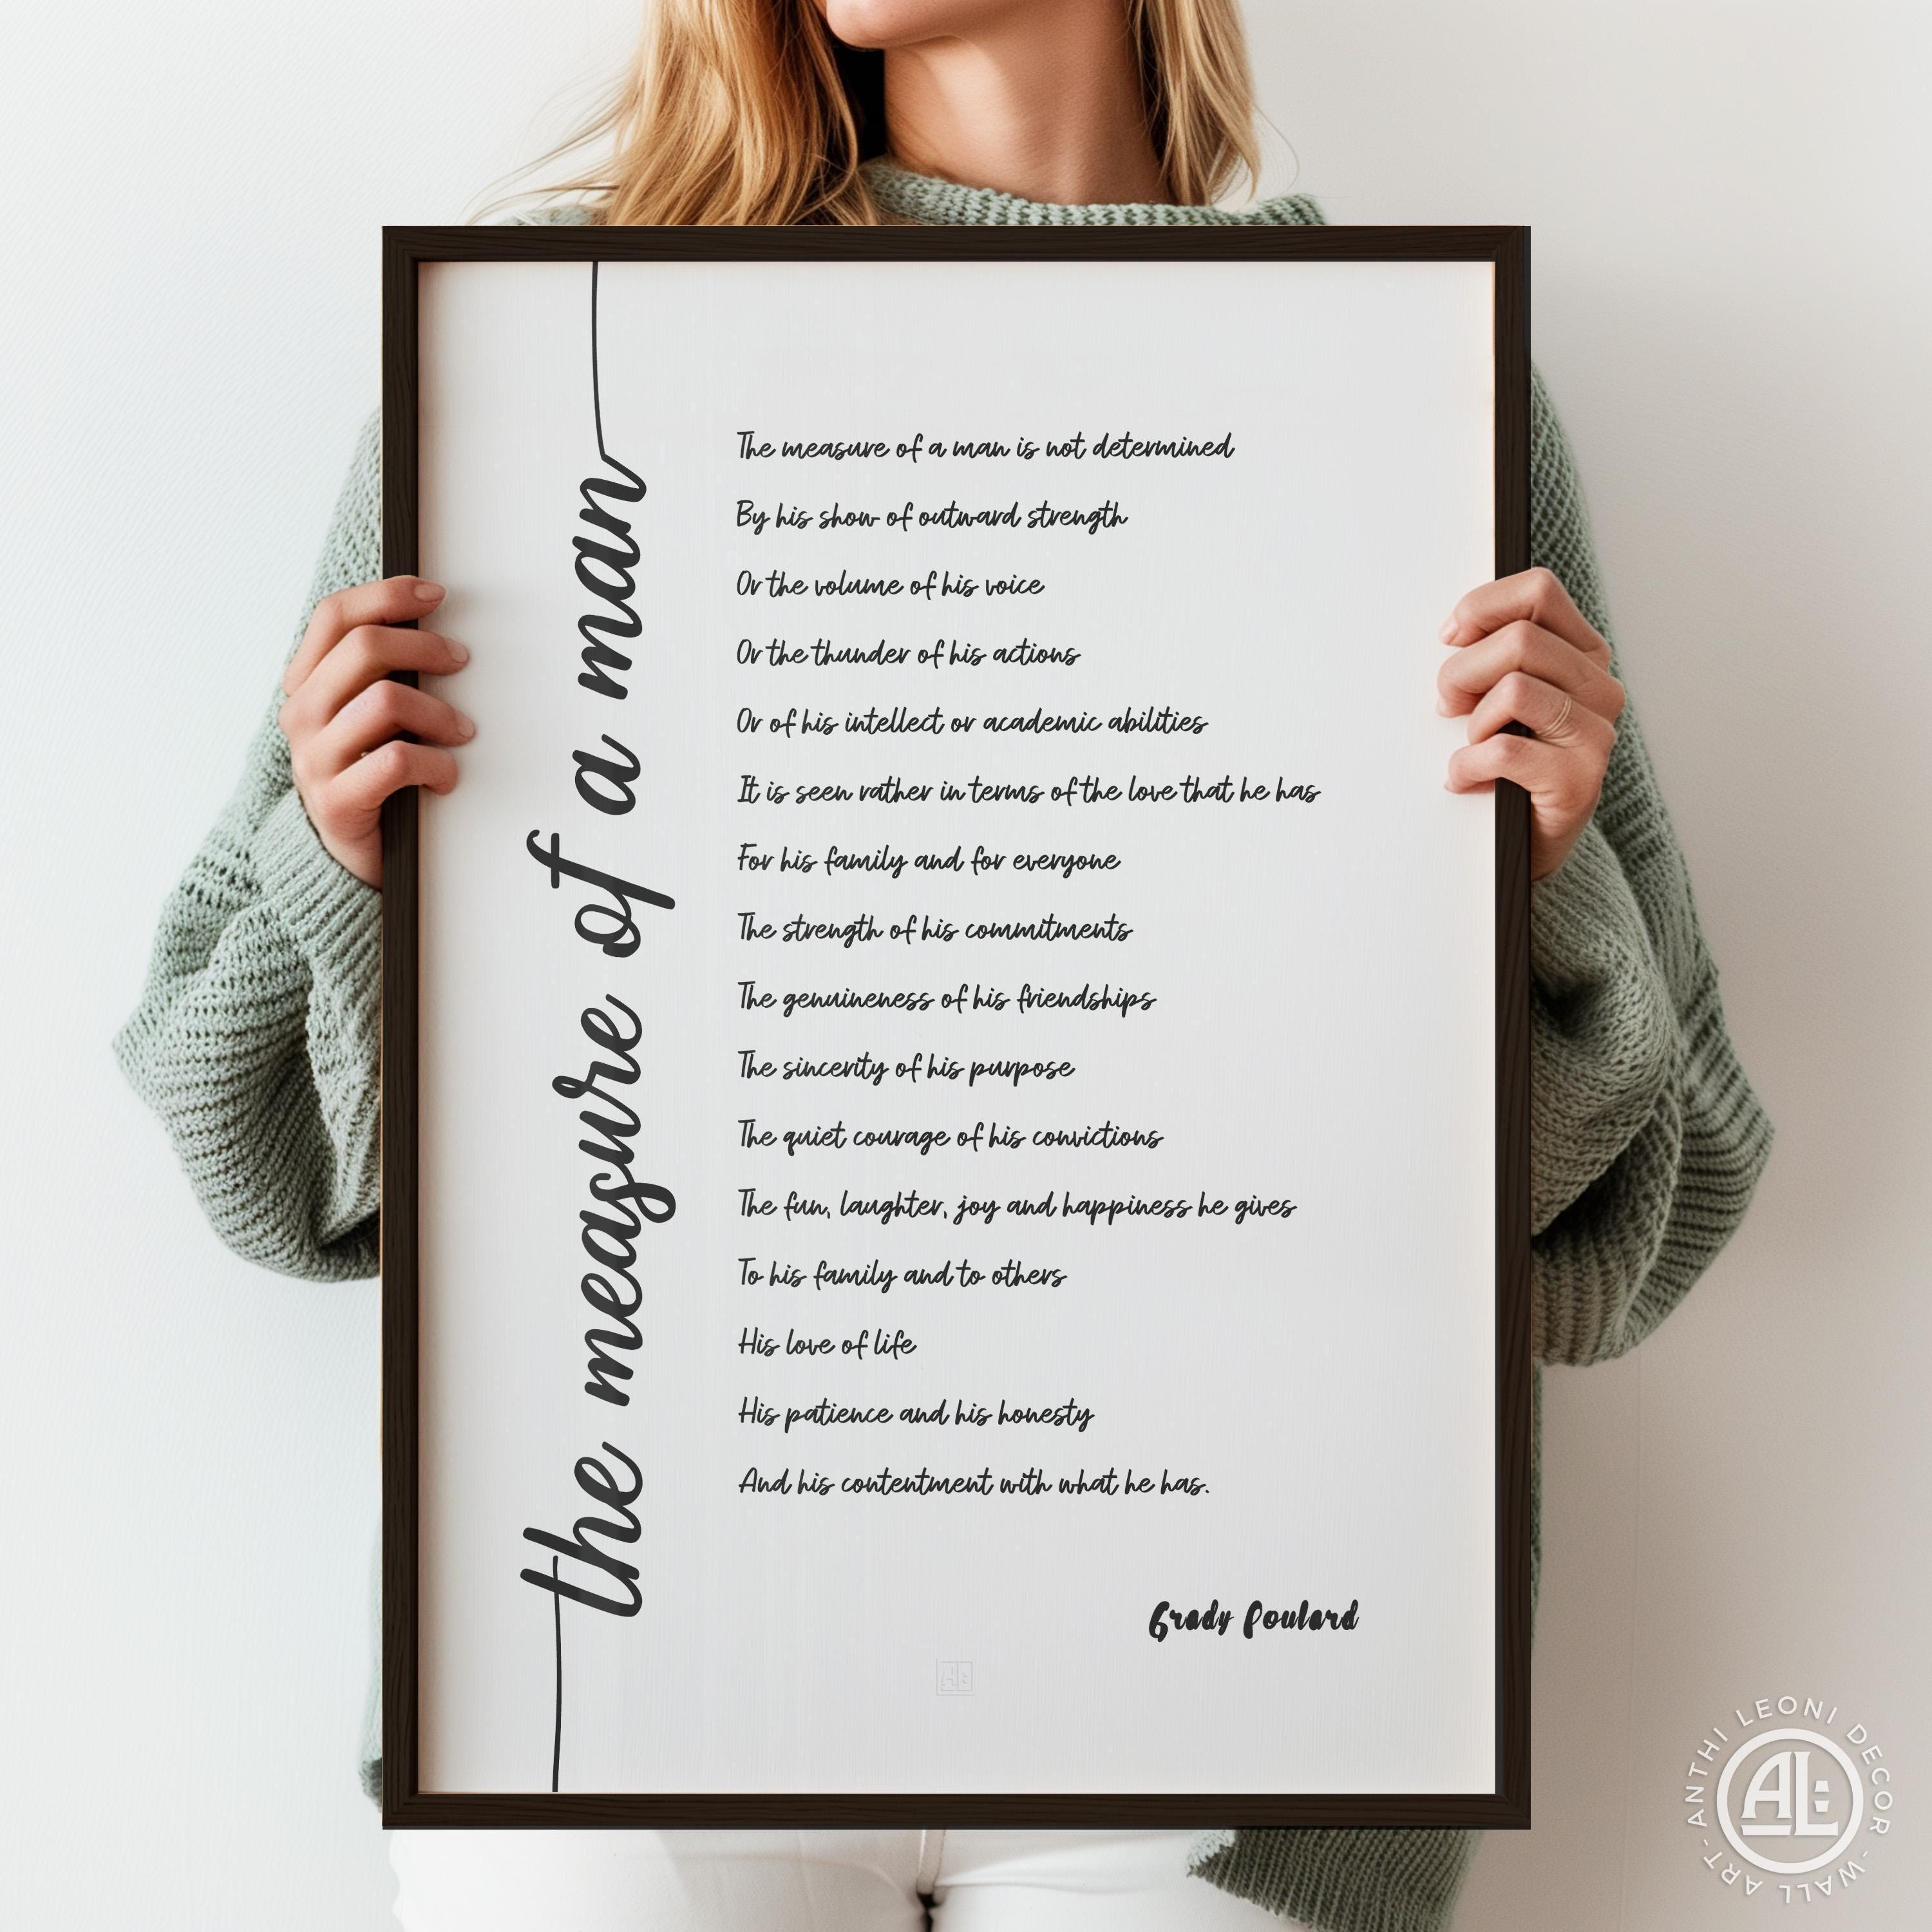 the measure of a man
The measure of a man is not determined
By his show of outward strength
Or the volume of his voice
Or the thunder of his actions
Or of his intellect or academic abilities
It is seen rather in terms of the love that he has
For his family and for everyone
The strength of his commitments
The genuineness of his friendships
The sincerity of his purpose
The quiet courage of his convictions
The fun, laughter, joy and happiness he gives
To his family and to others
His love of life
His patience and his honesty
And his contentment with what he has.
Grady Poulard
AL
ANTHI LEONI DECOR - WALL ART -
AL